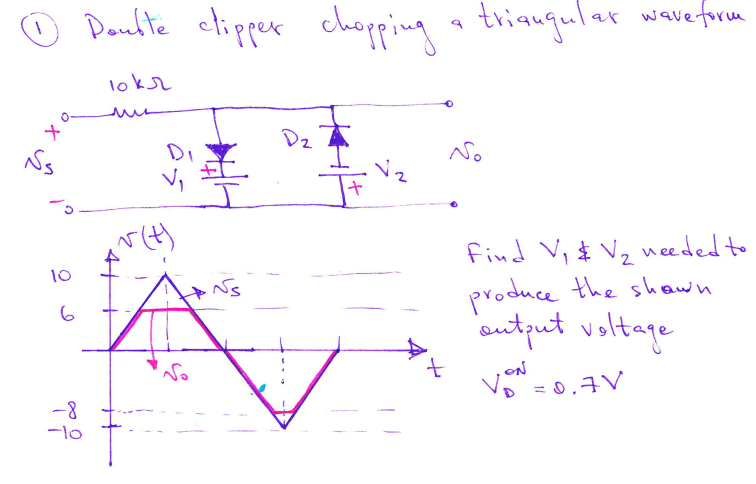 ① Double clipper chopping a triangular waveform
10kΩ
+
Vs
-
D1
V1
+
D2
V2
+
Vo
v(t)
10
6
Vs
Vo
t
-8
-10
Find V1 & V2 needed to
produce the shown
output voltage
V_D^ON = 0.7V